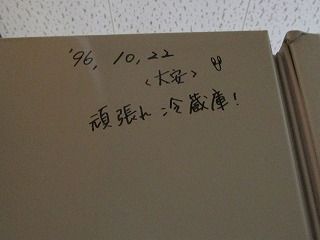 '96, 10, 22
<大安>
頑張れ 冷蔵庫!